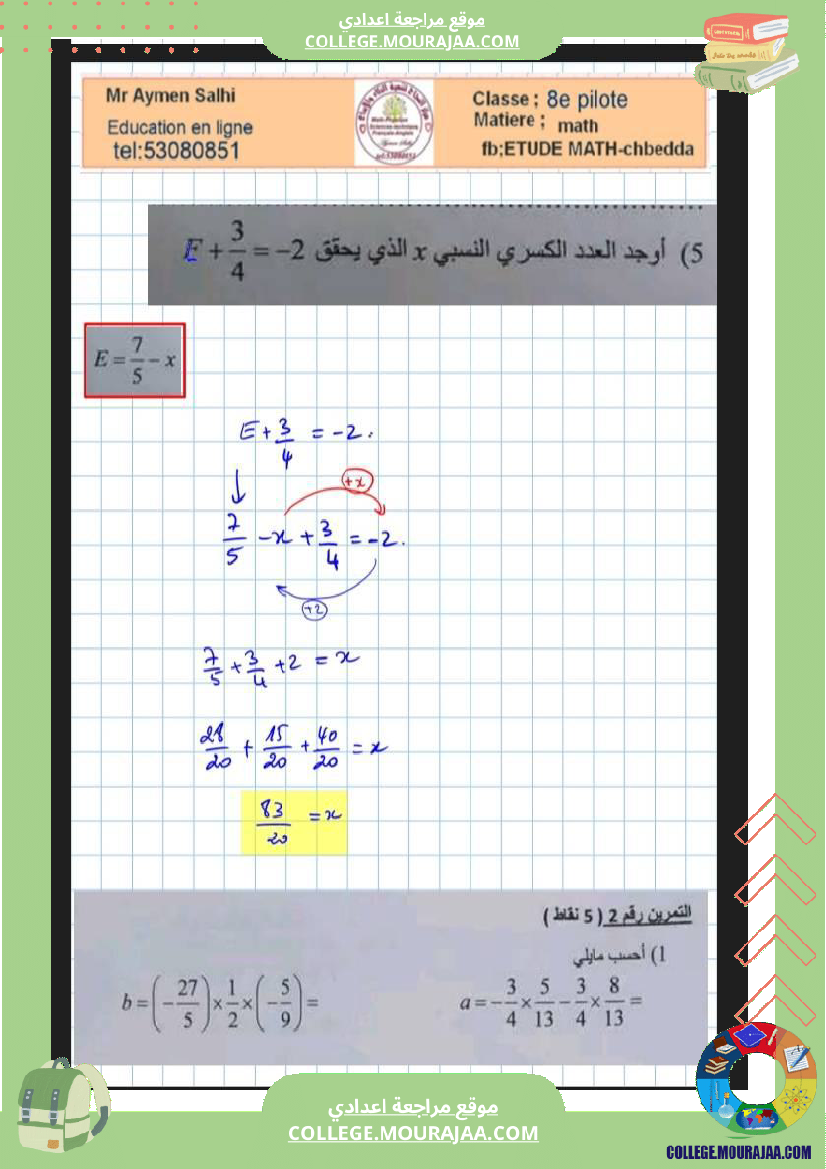 موقع مراجعة اعدادي
COLLEGE.MOURAJAA.COM
Mr Aymen Salhi
Education en ligne
tel:53080851
Classe ; 8e pilote
Matiere ; math
fb;ETUDE MATH-chbedda
5) أوجد العدد الكسري النسبي x الذي يحقق E + 3/4 = -2
E = 7/5 - x
E + 3/4 = -2.
+x
7/5 - x + 3/4 = -2.
+2
7/5 + 3/4 + 2 = x
28/20 + 15/20 + 40/20 = x
83/20 = x
التمرين رقم 2 ( 5 نقاط )
1) أحسب مايلي
a = - 3/4 × 5/13 - 3/4 × 8/13 =
b = (- 27/5) × 1/2 × (- 5/9) =
موقع مراجعة اعدادي
COLLEGE.MOURAJAA.COM
COLLEGE.MOURAJAA.COM